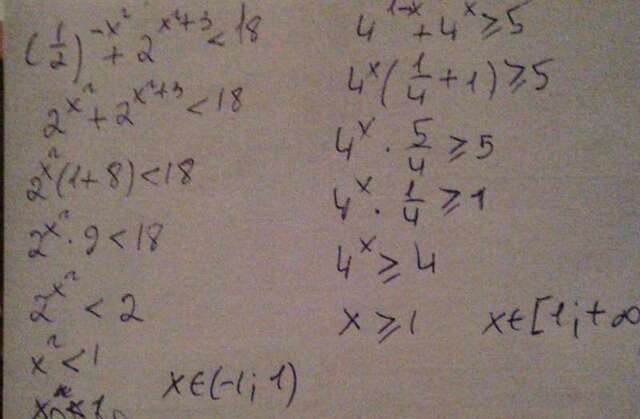 (1/2)^{-x²} + 2^{x²+3} < 18
2^{x²} + 2^{x²+3} < 18
2^{x²}(1+8) < 18
2^{x²} · 9 < 18
2^{x²} < 2
x² < 1
x ∈ (-1; 1)
4^{1-x} + 4^x ≥ 5
4^x(1/4 + 1) ≥ 5
4^x · 5/4 ≥ 5
4^x · 1/4 ≥ 1
4^x ≥ 4
x ≥ 1 x ∈ [1; +∞